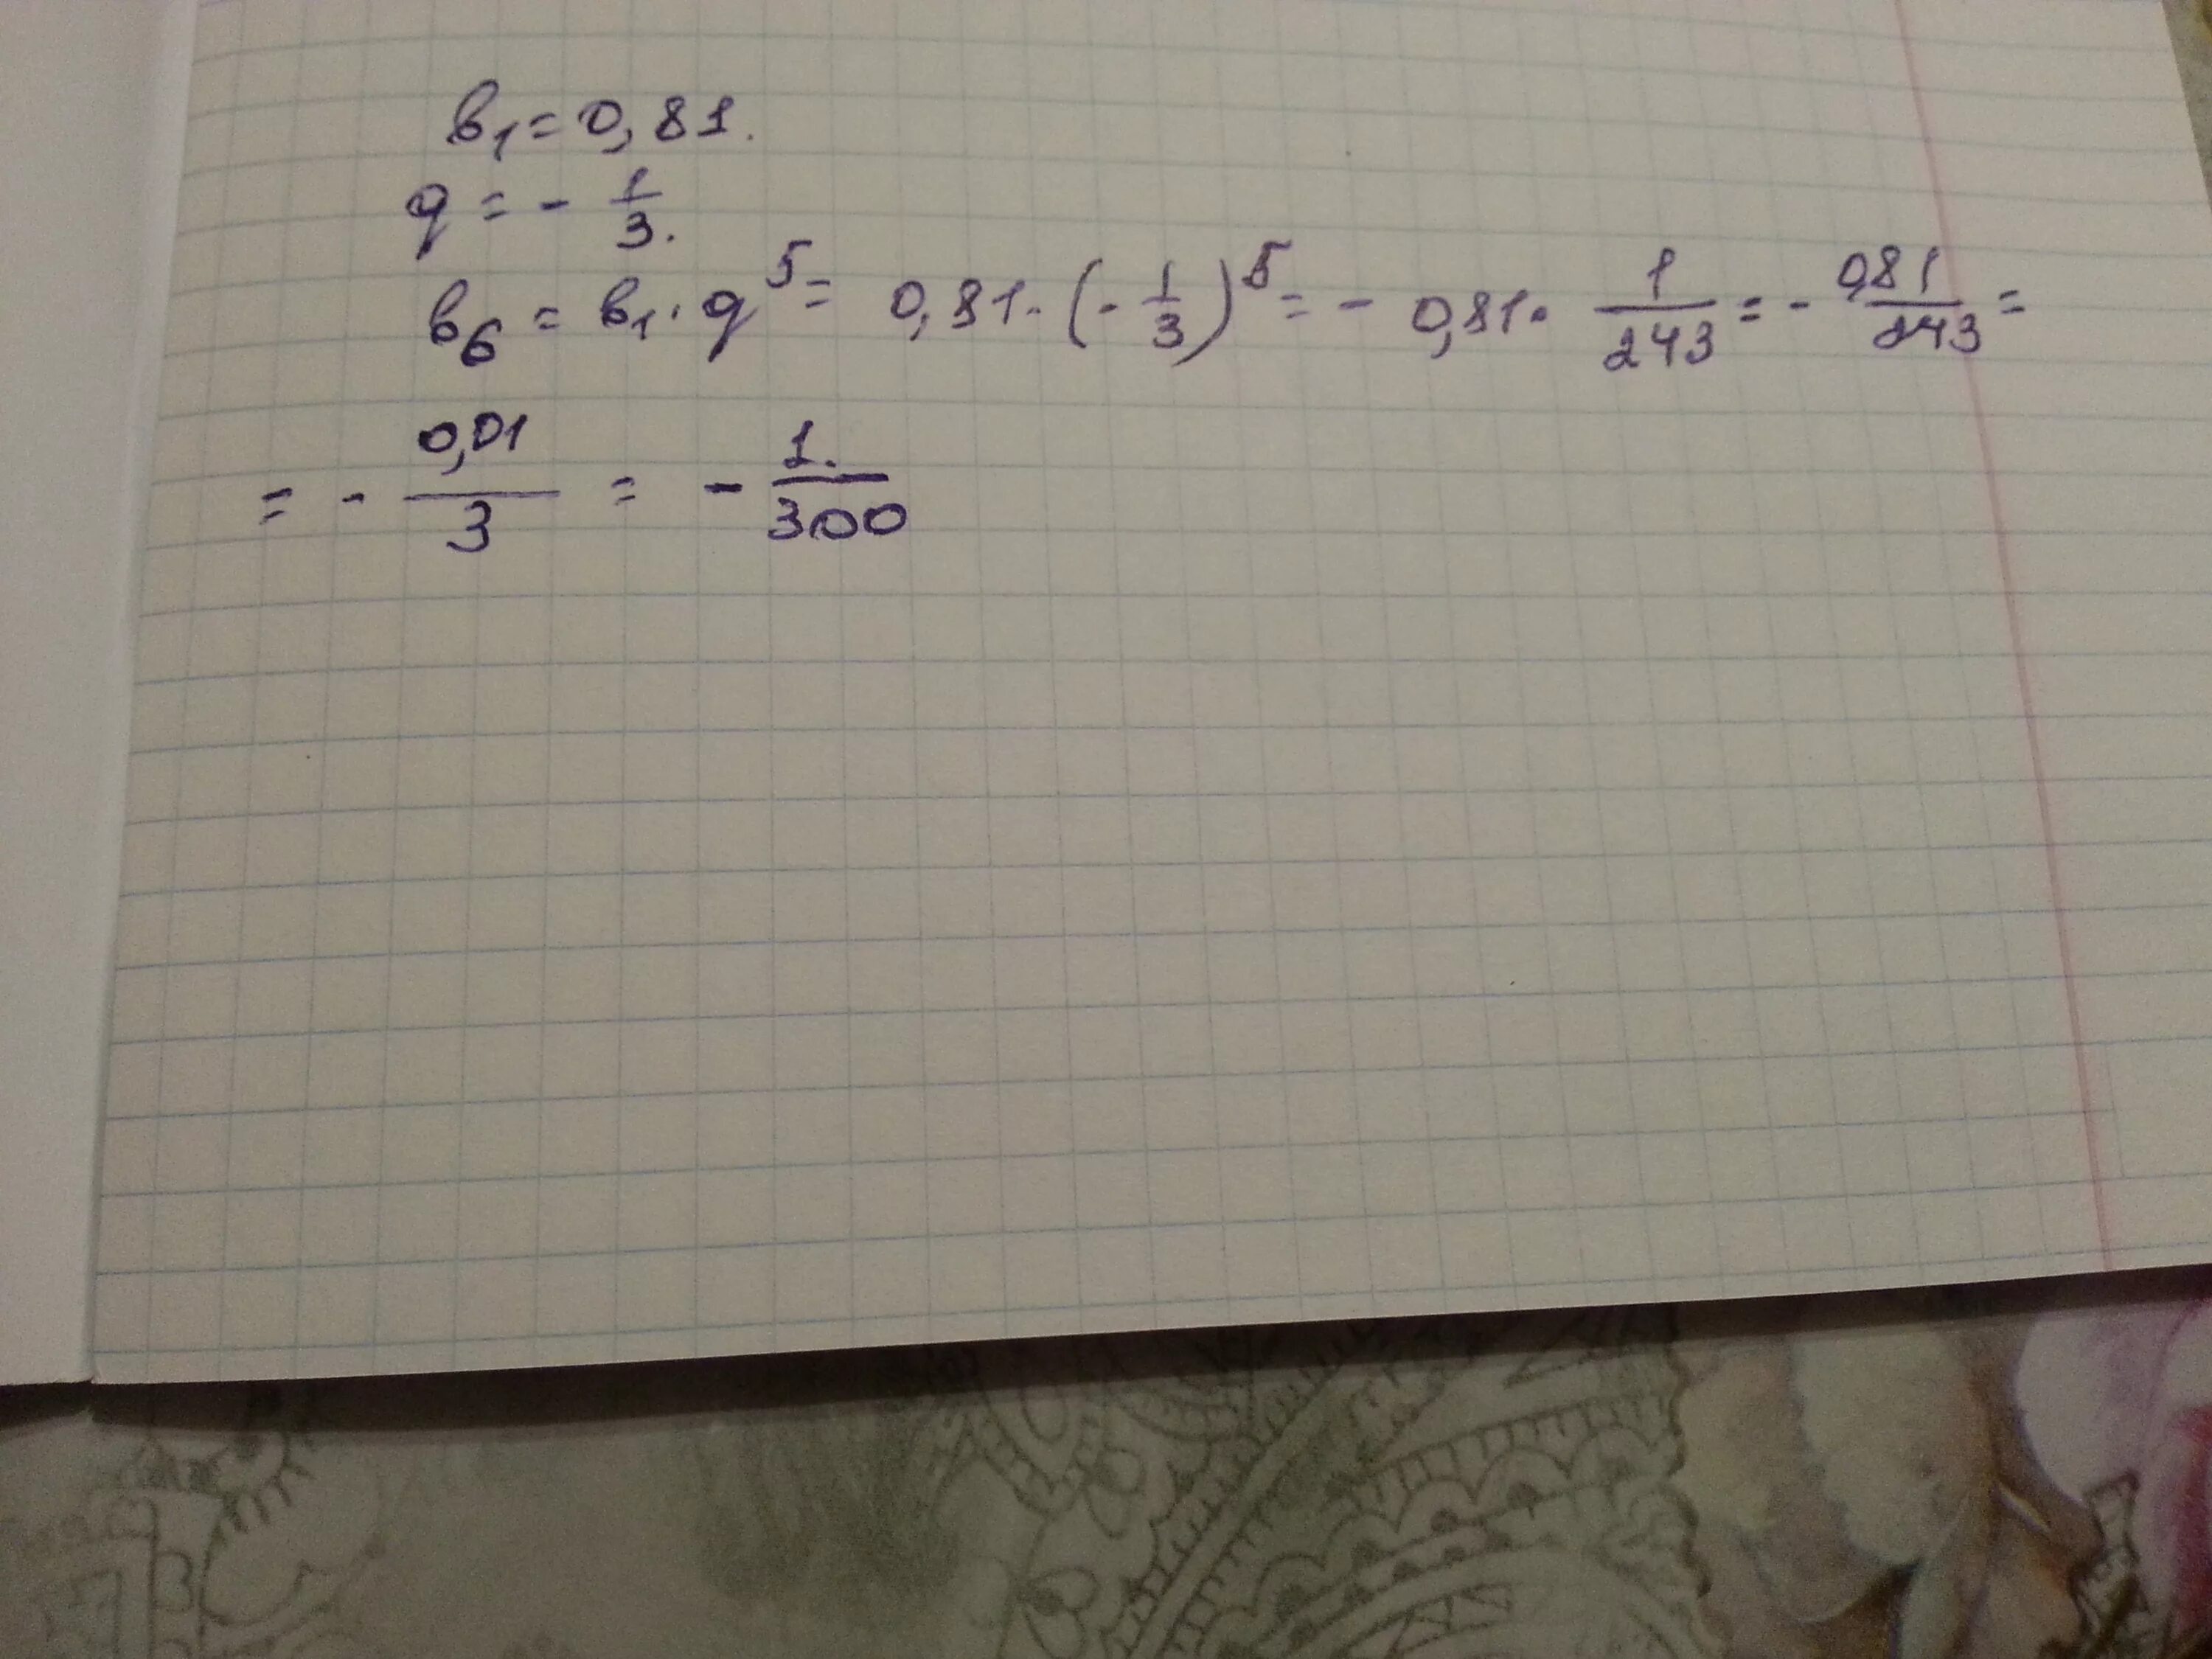 в₁ = 0,81.
q = - 1/3.
в₆ = в₁ · q⁵ = 0,81 · (- 1/3)⁵ = - 0,81 · 1/243 = - 0,81/243 =
= - 0,01/3 = - 1/300